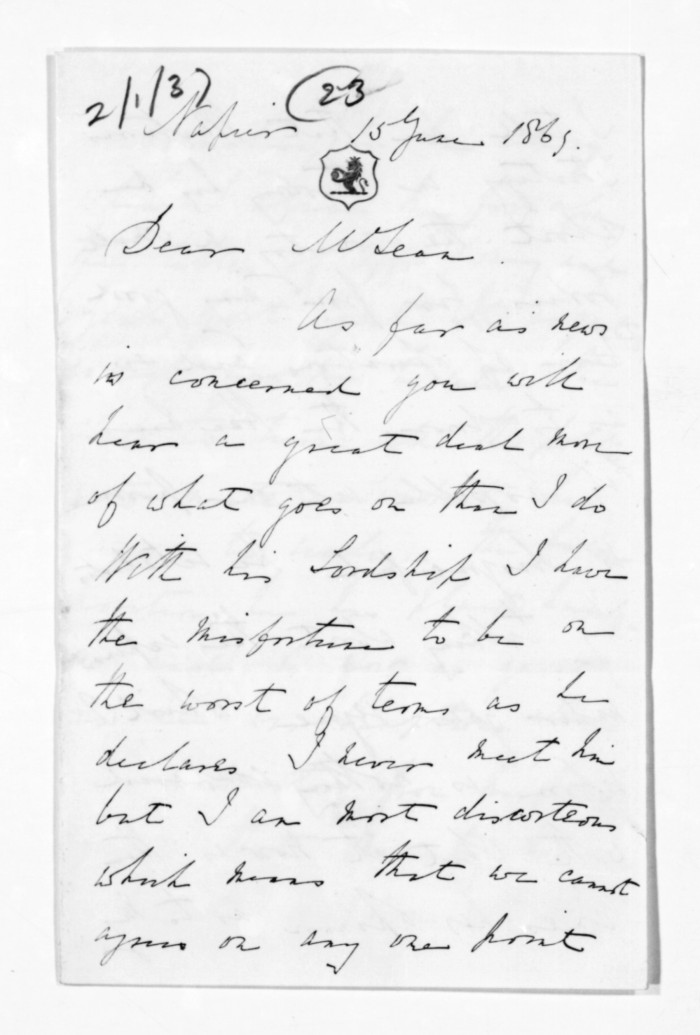 2/1/37
23
Napier 15 June 1865.
Dear McLean
As far as news
is concerned you will
hear a great deal more
of what goes on than I do
With his Lordship I have
the misfortune to be on
the worst of terms as he
declares I never meet him
but I am most discorteous
which means that we cannot
agree on any one point